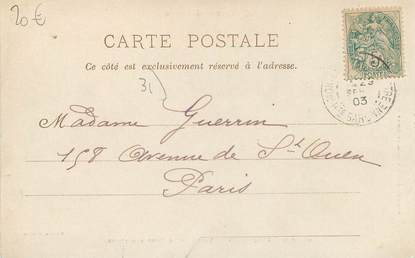 20 €
CARTE POSTALE
Ce côté est exclusivement réservé à l'adresse.
31
Madame Guerrin
158 Avenue de St Ouen
Paris
03